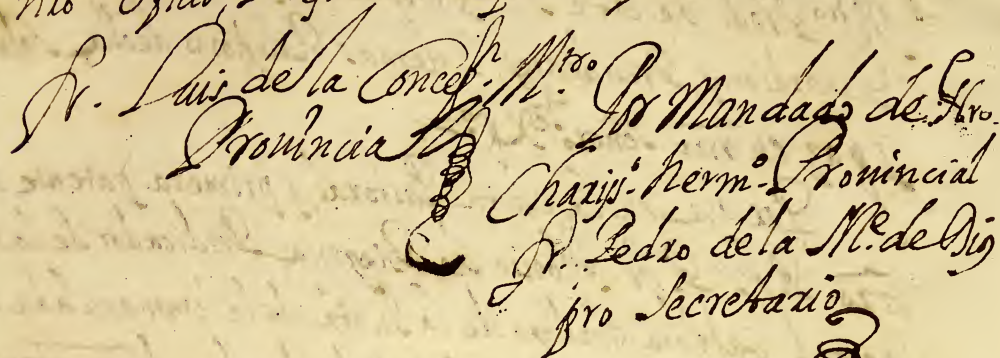 Fr. Luis de la Concepn. Mtro.
Prouincial
Por Mandado de Nro.
Chariss.o herm.o Prouincial
Fr. Pedro de la Me. de Dios
pro Secretario